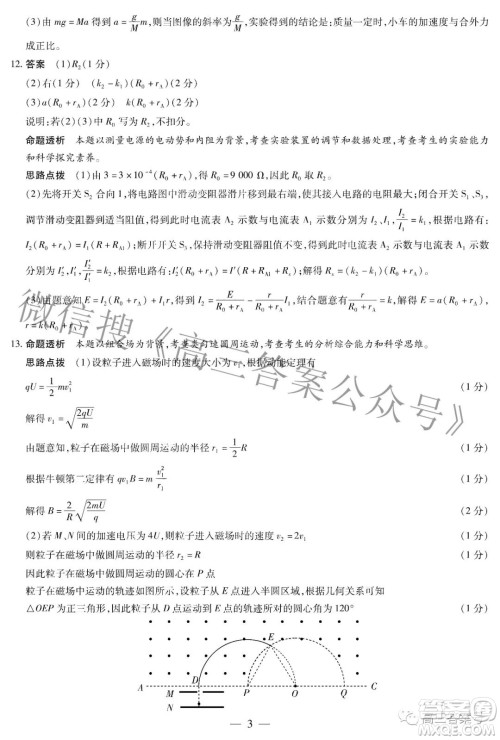 (3)由 mg = Ma 得到 a = g/M m，则当图像的斜率为 g/M，实验得到的结论是：质量一定时，小车的加速度与合外力
成正比。
12. 答案 (1)R₂(1 分)
(2)右(1 分) (k₂ − k₁)(R₀ + r_A)(2 分)
(3)a(R₀ + r_A)(2 分) k(R₀ + r_A)(2 分)
说明：若(2)(3)中 R₀ 写为 R₂，不扣分。
命题透析 本题以测量电源的电动势和内阻为背景，考查实验装置的调节和数据处理，考查考生的实验能力
和科学探究素养。
思路点拨 (1)由 3 = 3 × 10⁻⁴(R₀ + r_A)，得 R₀ = 9 000 Ω，因此 R₀ 取 R₂。
(2)先将开关 S₂ 合向 1，将电路图中滑动变阻器滑片移到最右端，使其接入电路的电阻最大；闭合开关 S₁，
调节滑动变阻器到适当阻值，得到此时电流表 A₂ 示数与电流表 A₁ 示数分别为 I₂、I₁，I₂/I₁ = k₁，根据电路有：
I₂(R₀ + r_A) = I₁(R + R_A1)；断开开关 S₃，保持滑动变阻器不变，得到此时电流表 A₂ 示数与电流表 A₁ 示数
(3)由题意知 E = I₂(R₀ + r_A) + I₁r，得到 I₂ = E/(R₀ + r_A) − r/(R₀ + r_A) I₁，结合题意有 r/(R₀ + r_A) = k，解得 E = a(R₀ + r_A)，
13. 命题透析 本题以组合场为背景，考查匀速圆周运动，考查考生的分析综合能力和科学思维。
思路点拨 (1)设粒子进入磁场时的速度大小为 v₁，根据动能定理有
qU = 1/2 mv₁² (1 分)
解得 v₁ = √(2qU/m) (1 分)
由题意知，粒子在磁场中做圆周运动的半径 r₁ = 1/2 R (1 分)
根据牛顿第二定律有 qv₁B = m v₁²/r₁ (1 分)
解得 B = 2/R √(2mU/q) (2 分)
(2)若 M、N 间的加速电压为 4U，则粒子进入磁场时的速度 v₂ = 2v₁ (1 分)
则粒子在磁场中做圆周运动的半径 r₂ = R (1 分)
因此粒子在磁场中做圆周运动的圆心在 P 点
粒子在磁场中运动的轨迹如图所示，设粒子从 E 点进入半圆区域，根据几何关系可知
△OEP 为正三角形，因此粒子从 D 点运动到 E 点的轨迹所对的圆心角为 120° (1 分)
E
A D P O Q C
M
N
— 3 —
微信搜《高三答案公众号》
高三答案号